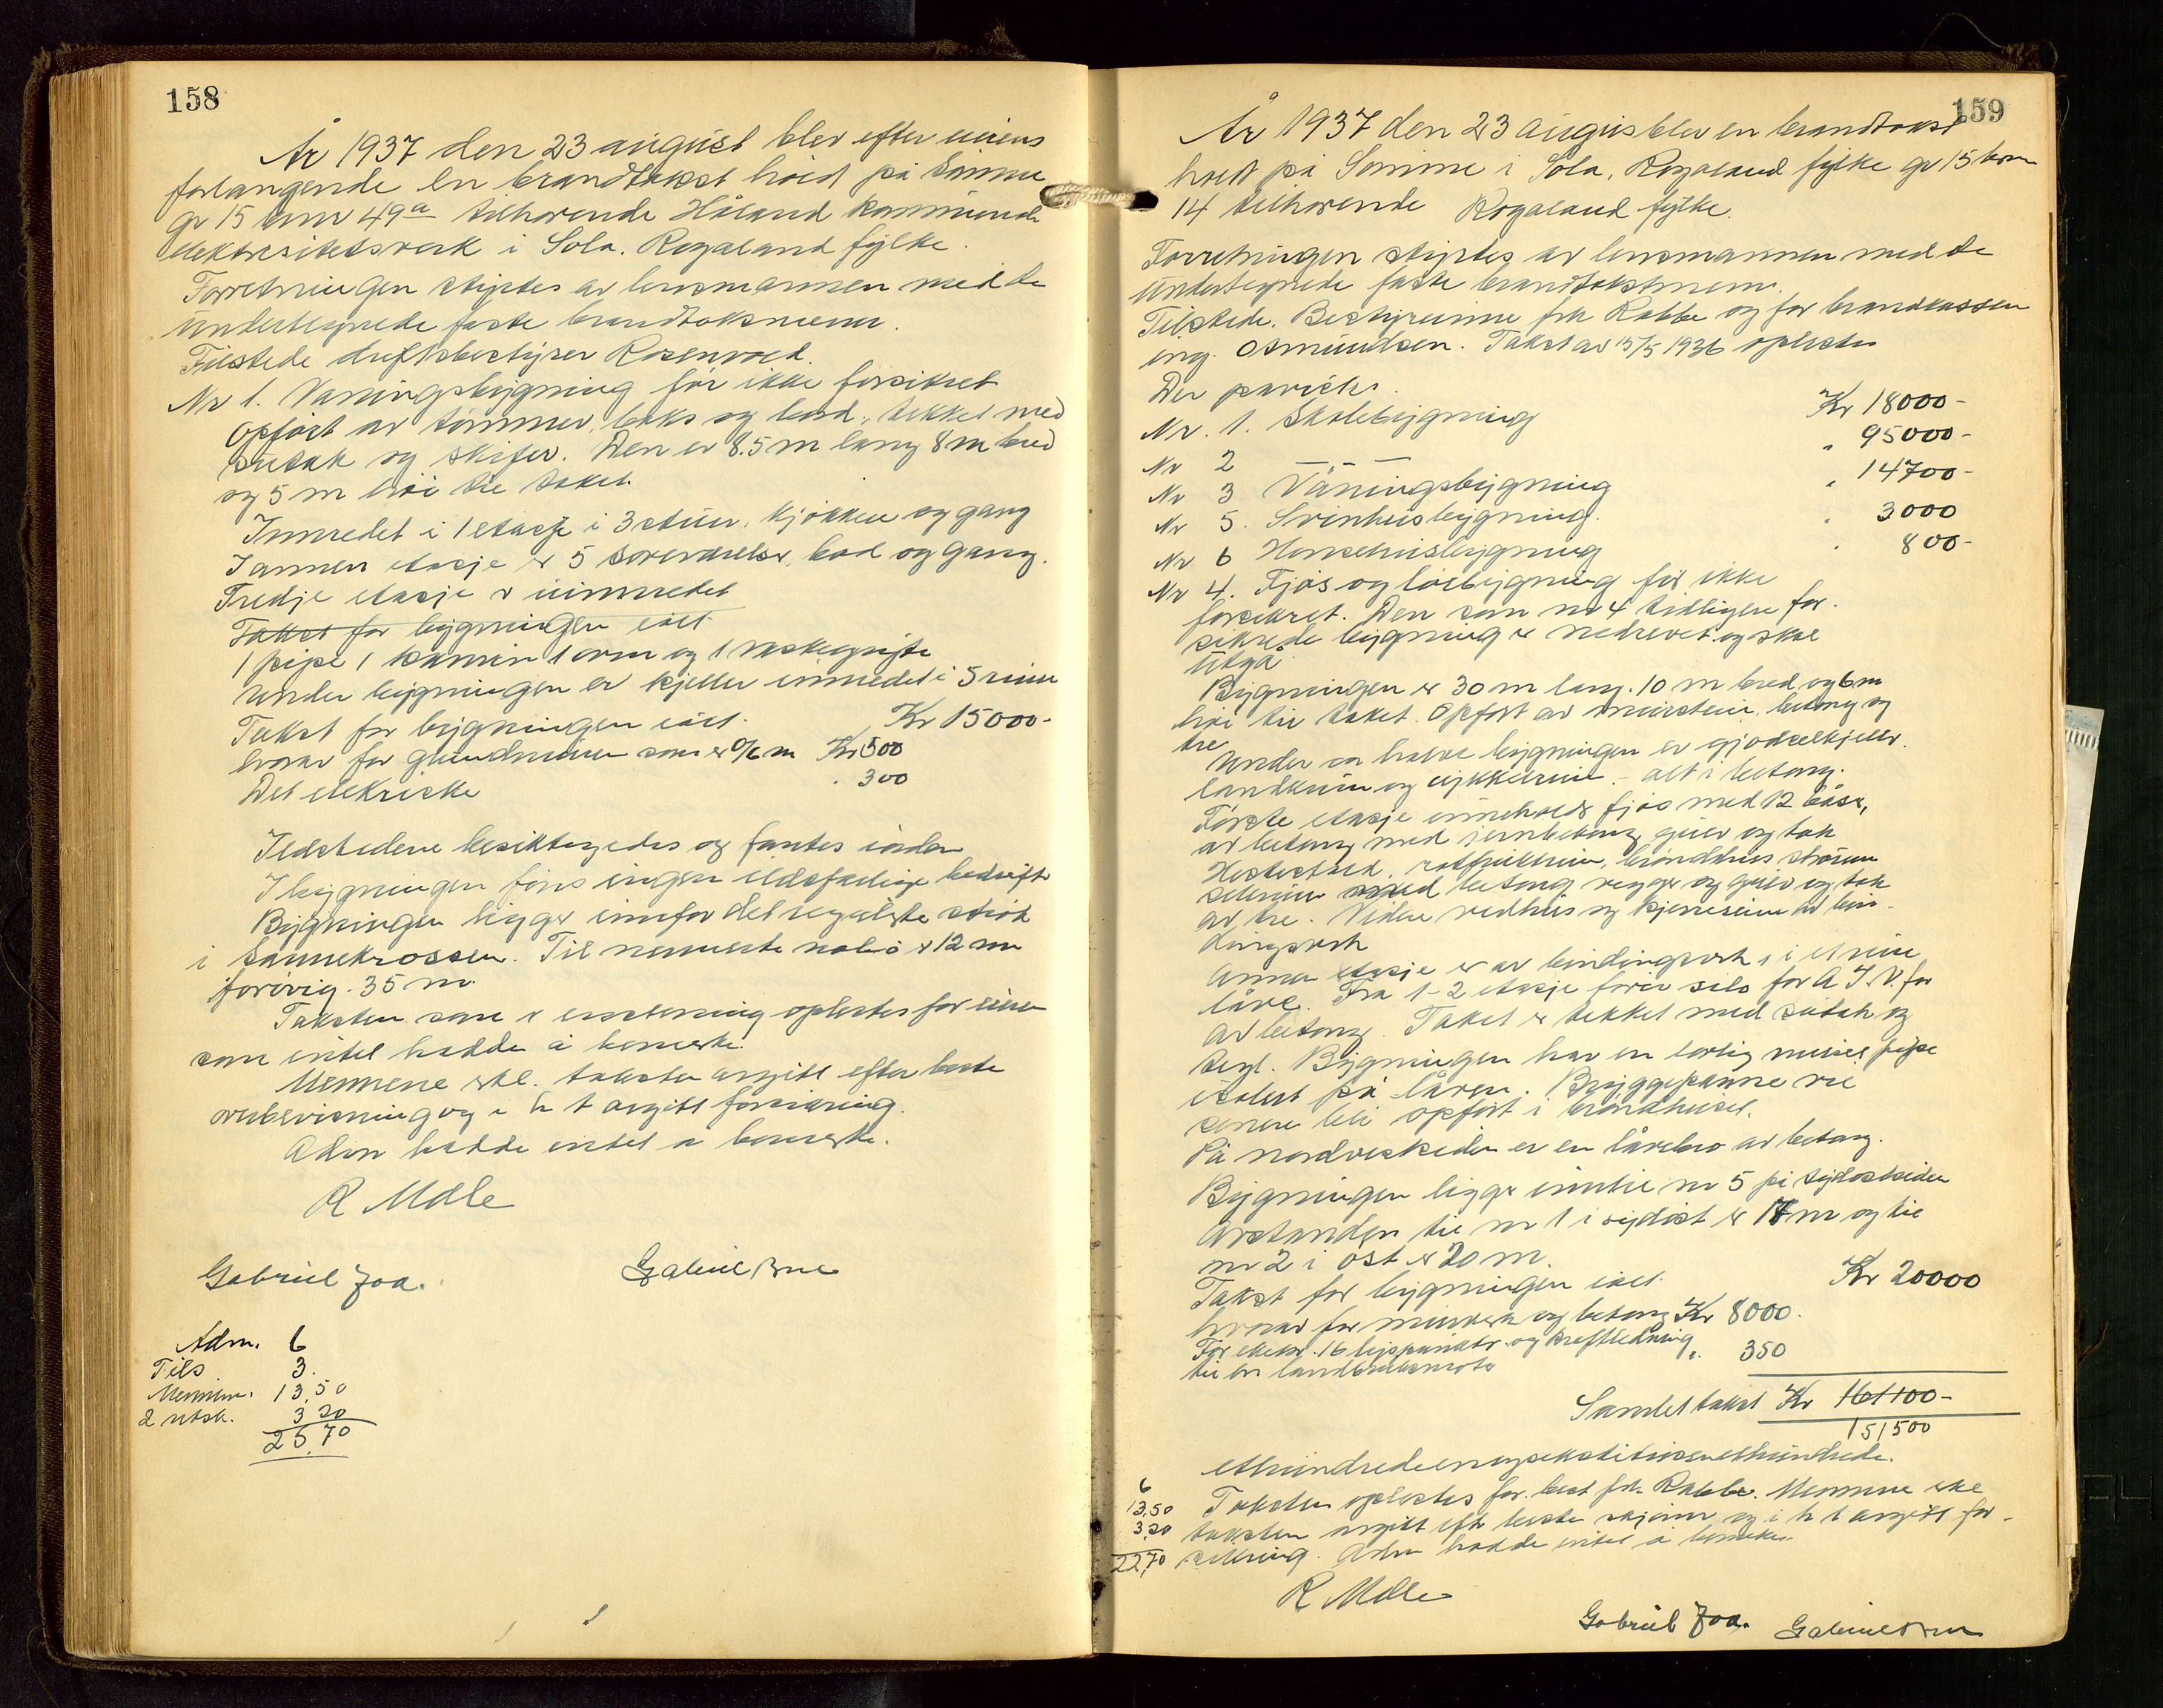 158
År 1937 den 23 august blev efter eierens
forlangende en brandtakst holdt på Sømme
gr 15 brnr 49a tilhørende Håland kommunale
elektrisitetsverk i Sola. Rogaland fylke.
Forretningen styrtes av lensmannen med de
undertegnede faste brandtaksmenn.
Tilstede driftsbestyrer Rosenvold.
Nr 1. Våningsbygning før ikke forsikret
Opført av tømmer, leks og bord, tekket med
sutak og skifer. Den er 8.5 m lang 8 m bred
og 5 m høi til taket.
Innredet i 1 etasje i 3 stuer, kjøkken og gang
I annen etasje er 5 soveværelser, bad og gang.
Tredje etasje er uinnredet
Takst for bygningen iålt
1 pipe 1 kamin 1 ovn og 1 vaskegryte
Under bygningen er kjeller innredet i 5 rum
Takst for bygningen iålt. Kr 15000-
hvorav for grundmuren som er 0/6 m Kr 500
Det elektriske " 300
Ildstedene besiktigedes og fantes iorden
I bygningen føres ingen ildsfarlige bedrift
Bygningen ligger innefor det regulerte strøk
i Sømmekrossen. Til nermeste nabo er 12 m
forøvrig 35 m.
Taksten som er enstemmig oplestes for eieren
som intet hadde å bemerke.
Mennene erkl. taksten avgitt efter beste
overbevisning og i h t avgitt forsikring.
Adm hadde intet å bemerke.
R Malle
Gabriel Joa. Gabriel Brue
Adm. 6
Tils 3.
Mennene. 13,50
2 utsk. 3 20
25,70
159
År 1937 den 23 august blev en brandtakst
holdt på Sømme i Sola, Rogaland fylke gr 15 brnr
14 tilhørende Rogaland fylke.
Forretningen styrtes av lensmannen med de
undertegnede faste brandtakstmenn.
Tilstede. Bestyrerinne frk Rabbe og for brandkassen
ing. Osmundsen. Takst av 15/5 1936 oplestes
Der påvistes.
Nr. 1. Skolebygning Kr 18000-
Nr 2 — — " 95000-
Nr 3 Våningsbygning " 14700-
Nr 5. Svinhusbygning. " 3000
Nr 6 Hønsehusbygning " 800-
Nr 4. Fjøs og løebygning før ikke
forsikret. Den som nr 4 tidligere for-
sikrede bygning er nedrevet og skal
utgå
Bygningen er 30 m lang. 10 m bred og 6 m
høi til taket. Opført av murstein, betong og
tre
Under en halve bygningen er gjødselkjeller.
landkum og cykkelrum - alt i betong.
Første etasje inneholder fjøs med 12 båser,
av betong med jernbetong gulv og tak
Hestestald, rotfruktrum, brøndhus strørum
silorum med betong vegger og gulv og tak
av tre. Videre vedhus og kjørerum av bin-
dingsverk
Annen etasje er av bindingsverk, i et rum
låve. Fra 1-2 etasje fører silo for A I V. for
av betong. Taket er tekket med sutak og
tegl. Bygningen har en forlig muret pipe
isolert på låven. Bryggepanne vil
senere bli opført i brøndhuset.
På nordvestsiden er en låvebro av betong.
Bygningen ligger inntil nr 5 på sydostsiden
Avstanden til nr 1 i sydøst er 17 m og til
nr 2 i øst er 20 m.
Takst for bygningen iålt. Kr 20000
hvorav for murverk og betong Kr 8000.
For elektr. 16 lyspunkter og kraftledning
til en landbruksmotor " 350
Samlet takst Kr 161100-
151500
etthundredeenogsekstitusenetthundrede.
Taksten oplestes for best frk. Rabbe. Mennene erkl
taksten avgitt eft beste skjønn og i h t avgitt for-
sikring. Adm hadde intet å bemerke.
6
13,50
3,20
22,70
R Malle
Gabriel Joa. Gabriel Brue